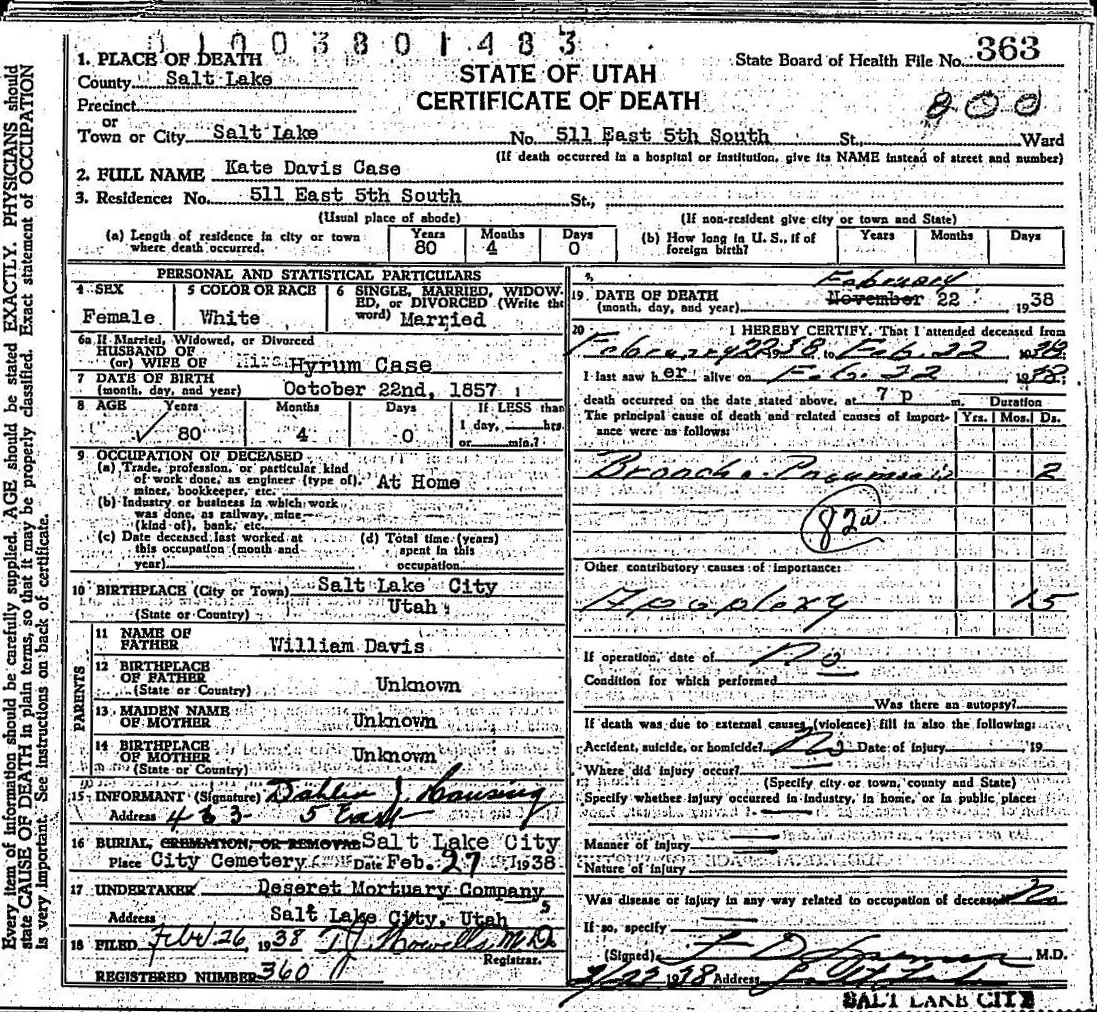 01003801483
1. PLACE OF DEATH
County Salt Lake
Precinct
or
Town or City Salt Lake
State Board of Health File No. 363
STATE OF UTAH
CERTIFICATE OF DEATH
800
No. 511 East 5th South St., Ward
(If death occurred in a hospital or institution, give its NAME instead of street and number)
2. FULL NAME Kate Davis Case
3. Residence: No. 511 East 5th South St.,
(Usual place of abode)
(If non-resident give city or town and State)
(a) Length of residence in city or town where death occurred.
Years 80 Months 4 Days 0
(b) How long in U. S., if of foreign birth?
Years Months Days
PERSONAL AND STATISTICAL PARTICULARS
4 SEX
Female
5 COLOR OR RACE
White
6 SINGLE, MARRIED, WIDOW-
ED, or DIVORCED (Write the
word) Married
6a If Married, Widowed, or Divorced
HUSBAND OF
(or) WIFE OF Hyrum Case
7 DATE OF BIRTH
(month, day, and year) October 22nd, 1857
8 AGE Years Months Days If LESS than
80 4 0 1 day, hrs.
or min.?
9 OCCUPATION OF DECEASED
(a) Trade, profession, or particular kind
of work done, as engineer (type of),
miner, bookkeeper, etc. At Home
(b) Industry or business in which work
was done, as railway, mine
(kind of), bank, etc.
(c) Date deceased last worked at
this occupation (month and
year)
(d) Total time (years)
spent in this
occupation
10 BIRTHPLACE (City or Town) Salt Lake City
(State or Country) Utah
PARENTS
11 NAME OF
FATHER William Davis
12 BIRTHPLACE
OF FATHER
(State or Country) Unknown
13 MAIDEN NAME
OF MOTHER Unknown
14 BIRTHPLACE
OF MOTHER
(State or Country) Unknown
15 INFORMANT (Signature)
Address 5 East
16 BURIAL, CREMATION, OR REMOVAL Salt Lake City
Place City Cemetery Date Feb. 27 1938
17 UNDERTAKER Deseret Mortuary Company
Address Salt Lake City, Utah
18 FILED Feb. 26 1938 M.D.
Registrar.
REGISTERED NUMBER 360
February
19 DATE OF DEATH
(month, day, and year) November 22 1938
20 I HEREBY CERTIFY, That I attended deceased from
February 22 38 to Feb. 22 1938
I last saw her alive on Feb. 22 1938
death occurred on the date stated above, at 7 p m. Duration
The principal cause of death and related causes of import-
ance were as follows:
Yrs. Mos. Ds.
Broncho-Pneumonia 2
82a
Other contributory causes of importance:
Apoplexy 15
If operation, date of No
Condition for which performed
Was there an autopsy?
If death was due to external causes (violence) fill in also the following:
Accident, suicide, or homicide? No Date of injury 19
Where did injury occur?
(Specify city or town, county and State)
Specify whether injury occurred in industry, in home, or in public place:
Manner of injury
Nature of injury
Was disease or injury in any way related to occupation of deceased? No
If so, specify
(Signed) M.D.
1938 Address Salt Lake
SALT LAKE CITY
Every item of information should be carefully supplied. AGE should be stated EXACTLY. PHYSICIANS should
state CAUSE OF DEATH in plain terms, so that it may be properly classified. Exact statement of OCCUPATION
is very important. See instructions on back of certificate.